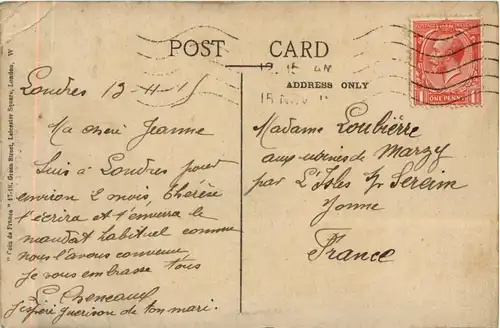 POST CARD
ADDRESS ONLY
ONE PENNY
Londres 13-11-15
Ma chère Jeanne
Suis à Londres pour
environ 2 mois, Thérèse
t'écrira et t'enverra le
mandat habituel comme
nous l'avons convenu,
je vous embrasse tous
J'espère guérison de ton mari.
Madame Loubière
aux usines de Marzy
par L'Isles s/ Serein
Yonne
France
"Coin de France" 17-18, Green Street, Leicester Square, London, W